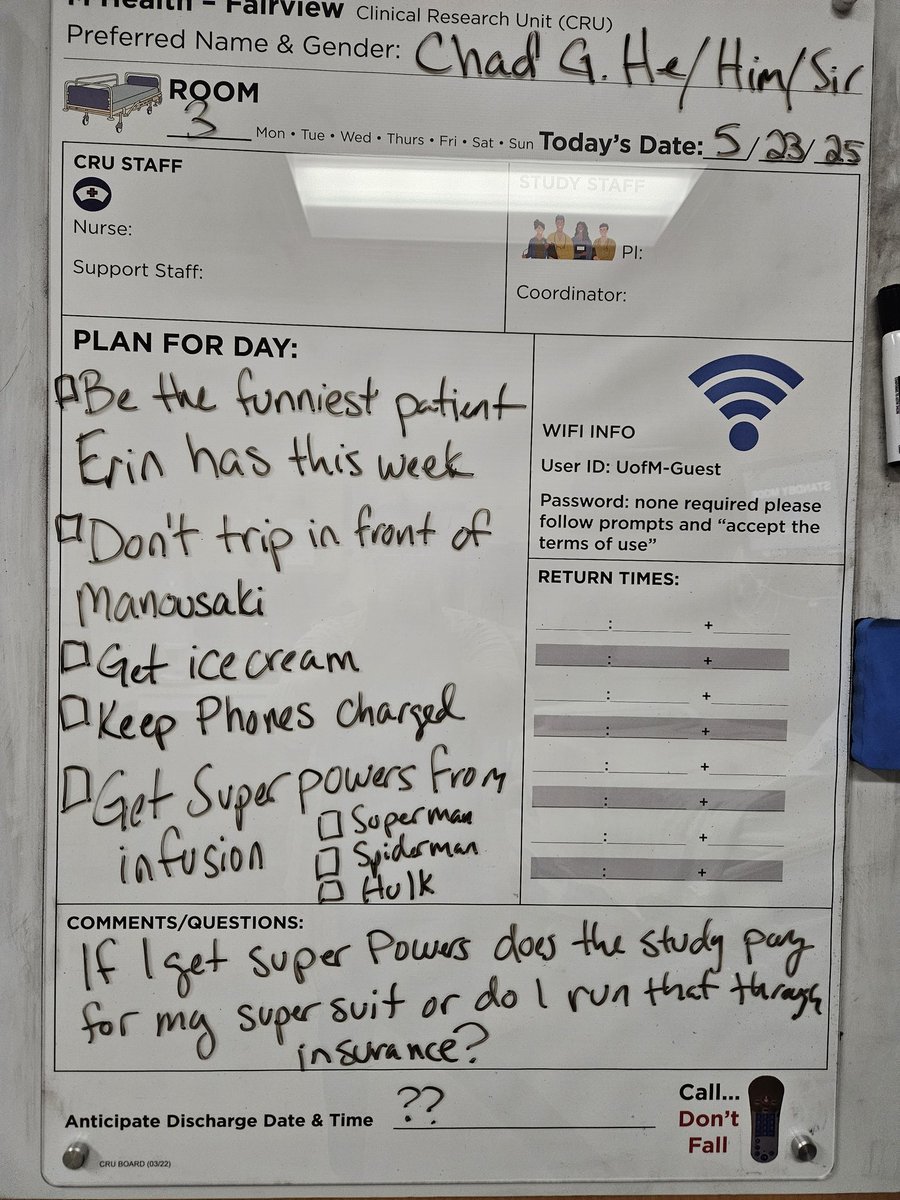 M Health – Fairview Clinical Research Unit (CRU)
Preferred Name & Gender: Chad G. He/Him/Sir
ROOM
3 Mon • Tue • Wed • Thurs • Fri • Sat • Sun Today's Date: 5/23/25
CRU STAFF
Nurse:
Support Staff:
STUDY STAFF
PI:
Coordinator:
PLAN FOR DAY:
Be the funniest patient
Erin has this week
Don't trip in front of
Manousaki
Get ice cream
Keep Phones charged
Get Super powers from
infusion
Superman
Spiderman
Hulk
WIFI INFO
User ID: UofM-Guest
Password: none required please
follow prompts and “accept the
terms of use”
RETURN TIMES:
: +
: +
: +
: +
: +
: +
: +
: +
COMMENTS/QUESTIONS:
If I get super Powers does the study pay
for my super suit or do I run that through
insurance?
Anticipate Discharge Date & Time ??
Call...
Don't
Fall
CRU BOARD (03/22)